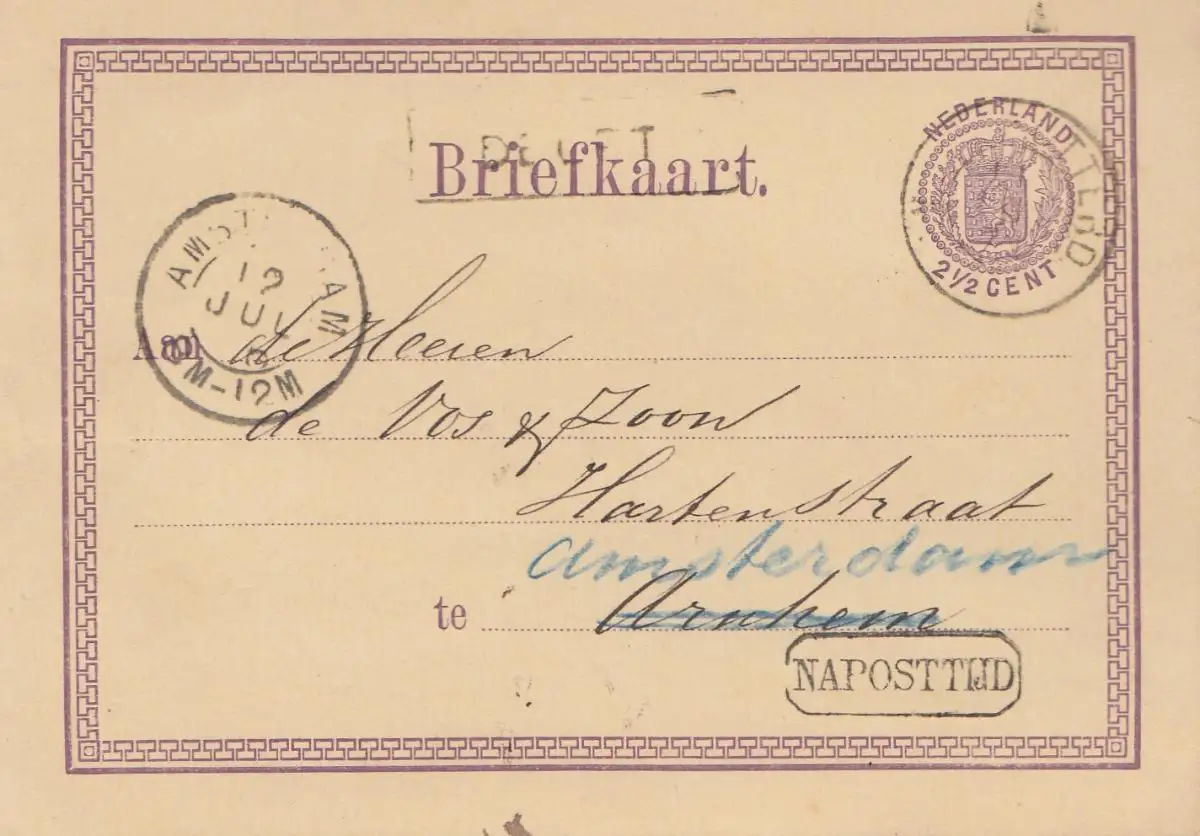 DELFT
Briefkaart.
NEDERLAND
2½ CENT
AM
19
JUL
8M-12M
Aan de Heeren
de Vos & Zoon
Hartenstraat
Amsterdam
te Arnhem
NAPOSTTIJD